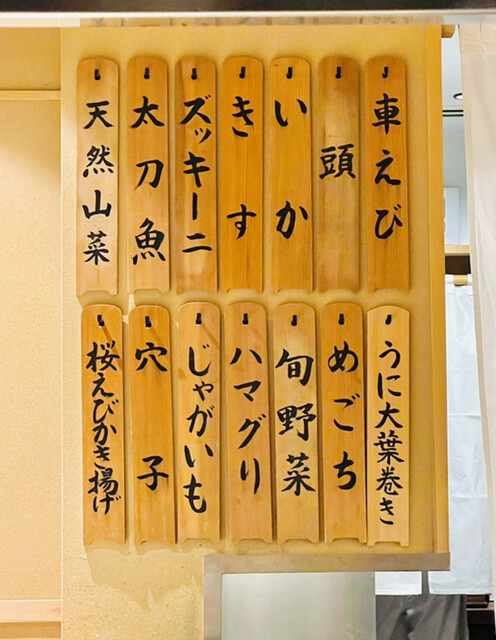 車えび
頭
いか
きす
ズッキーニ
太刀魚
天然山菜
うに大葉巻き
めごち
旬野菜
ハマグリ
じゃがいも
穴子
桜えびかき揚げ